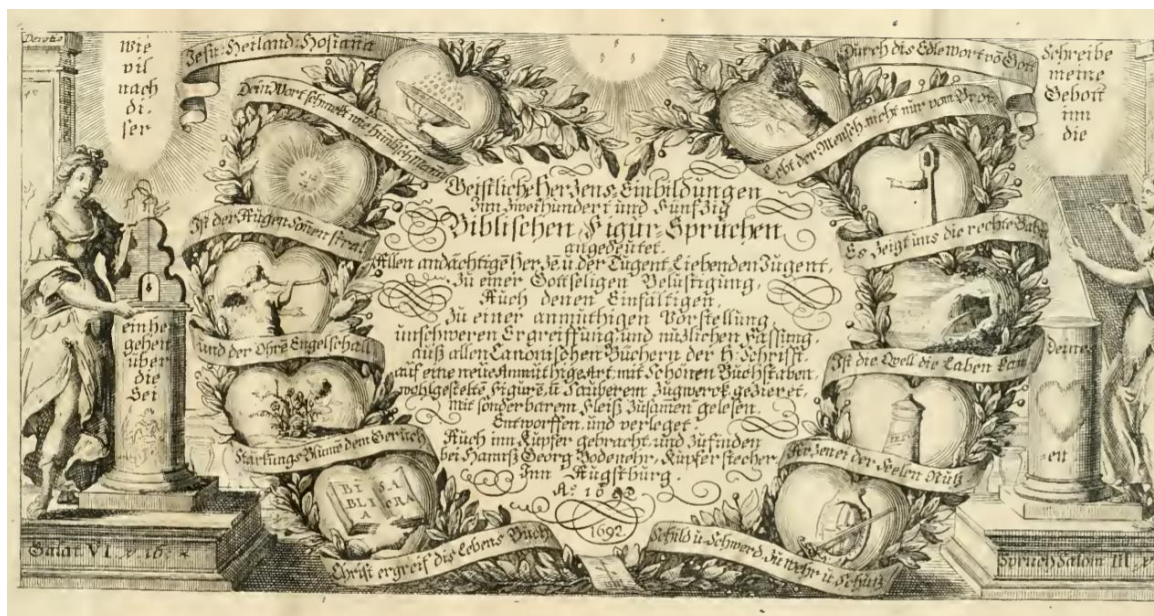 Devotio
wie
vil
nach
di.
ser
Jesu: Heiland: Hosiaña
Dein Wort schmekt wie
Ist der Augen Soñen stral
und der Ohrē Engelschall
Starkungs Blumē dem Geruch
BIBLIA SACRA
Christ ergreif dis Lebens Buch
einher
gehen
über
die
sei
Galat. VI. v. 16.
Geistliche Herzens Einbildungen
Inn Zweihundert und Fünfzig
Biblischen Figur-Sprüchen
angedeutet.
Allen andächtigē Herzē ū der Tugent Liebenden Jugent,
Zu einer Gottseligen Belüstigung,
Auch denen Einfältigen,
Zu einer anmüthigen Vorstellung,
unschweren Ergreiffung, und nuzlichen Fassung,
auß allen Canonischen Büchern der H: Schrifft,
auf eine neue Anmüthige Art, mit Schönen Buchstaben,
wohlgesteltē Figurē, ū Sauberem Zugwerk gezieret,
mit sonderbarem Fleiß Zusamen gelesen.
Entworffen, und verleget.
Auch inn Kupfer gebracht, und zufinden
bei Hannß Georg Bodenehr, Kupferstecher,
Inn Augstburg.
Aº. 1692
1692.
Durch dis Edle wort vō Gott
Lebt der Mensch, nicht nur vom Brot,
Es Zeigt uns die rechte Bahn
Ist die Qvell die Laben kan
Arzenei der Seelen Nutz
Schild ū Schwerd zu wehr ū Schutz
Schreibe
meine
Gebott
inn
die
Deines
en
Spruch Salom III. v